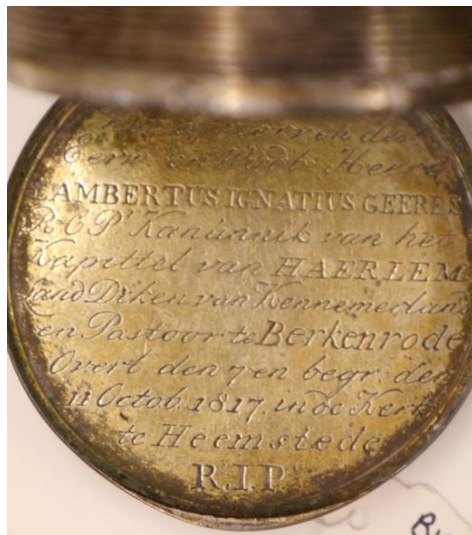 Eerw. en Wijdb. Heere
LAMBERTUS IGNATIUS GEERES
R.C.Pr. Kanunnik van het
Kapittel van HAERLEM
Land Diken van Kennemerland
en Pastoor te Berkenrode
Overl den 7 en begr: den
11 Octob. 1817 in de Kerk
te Heemstede
R.I.P